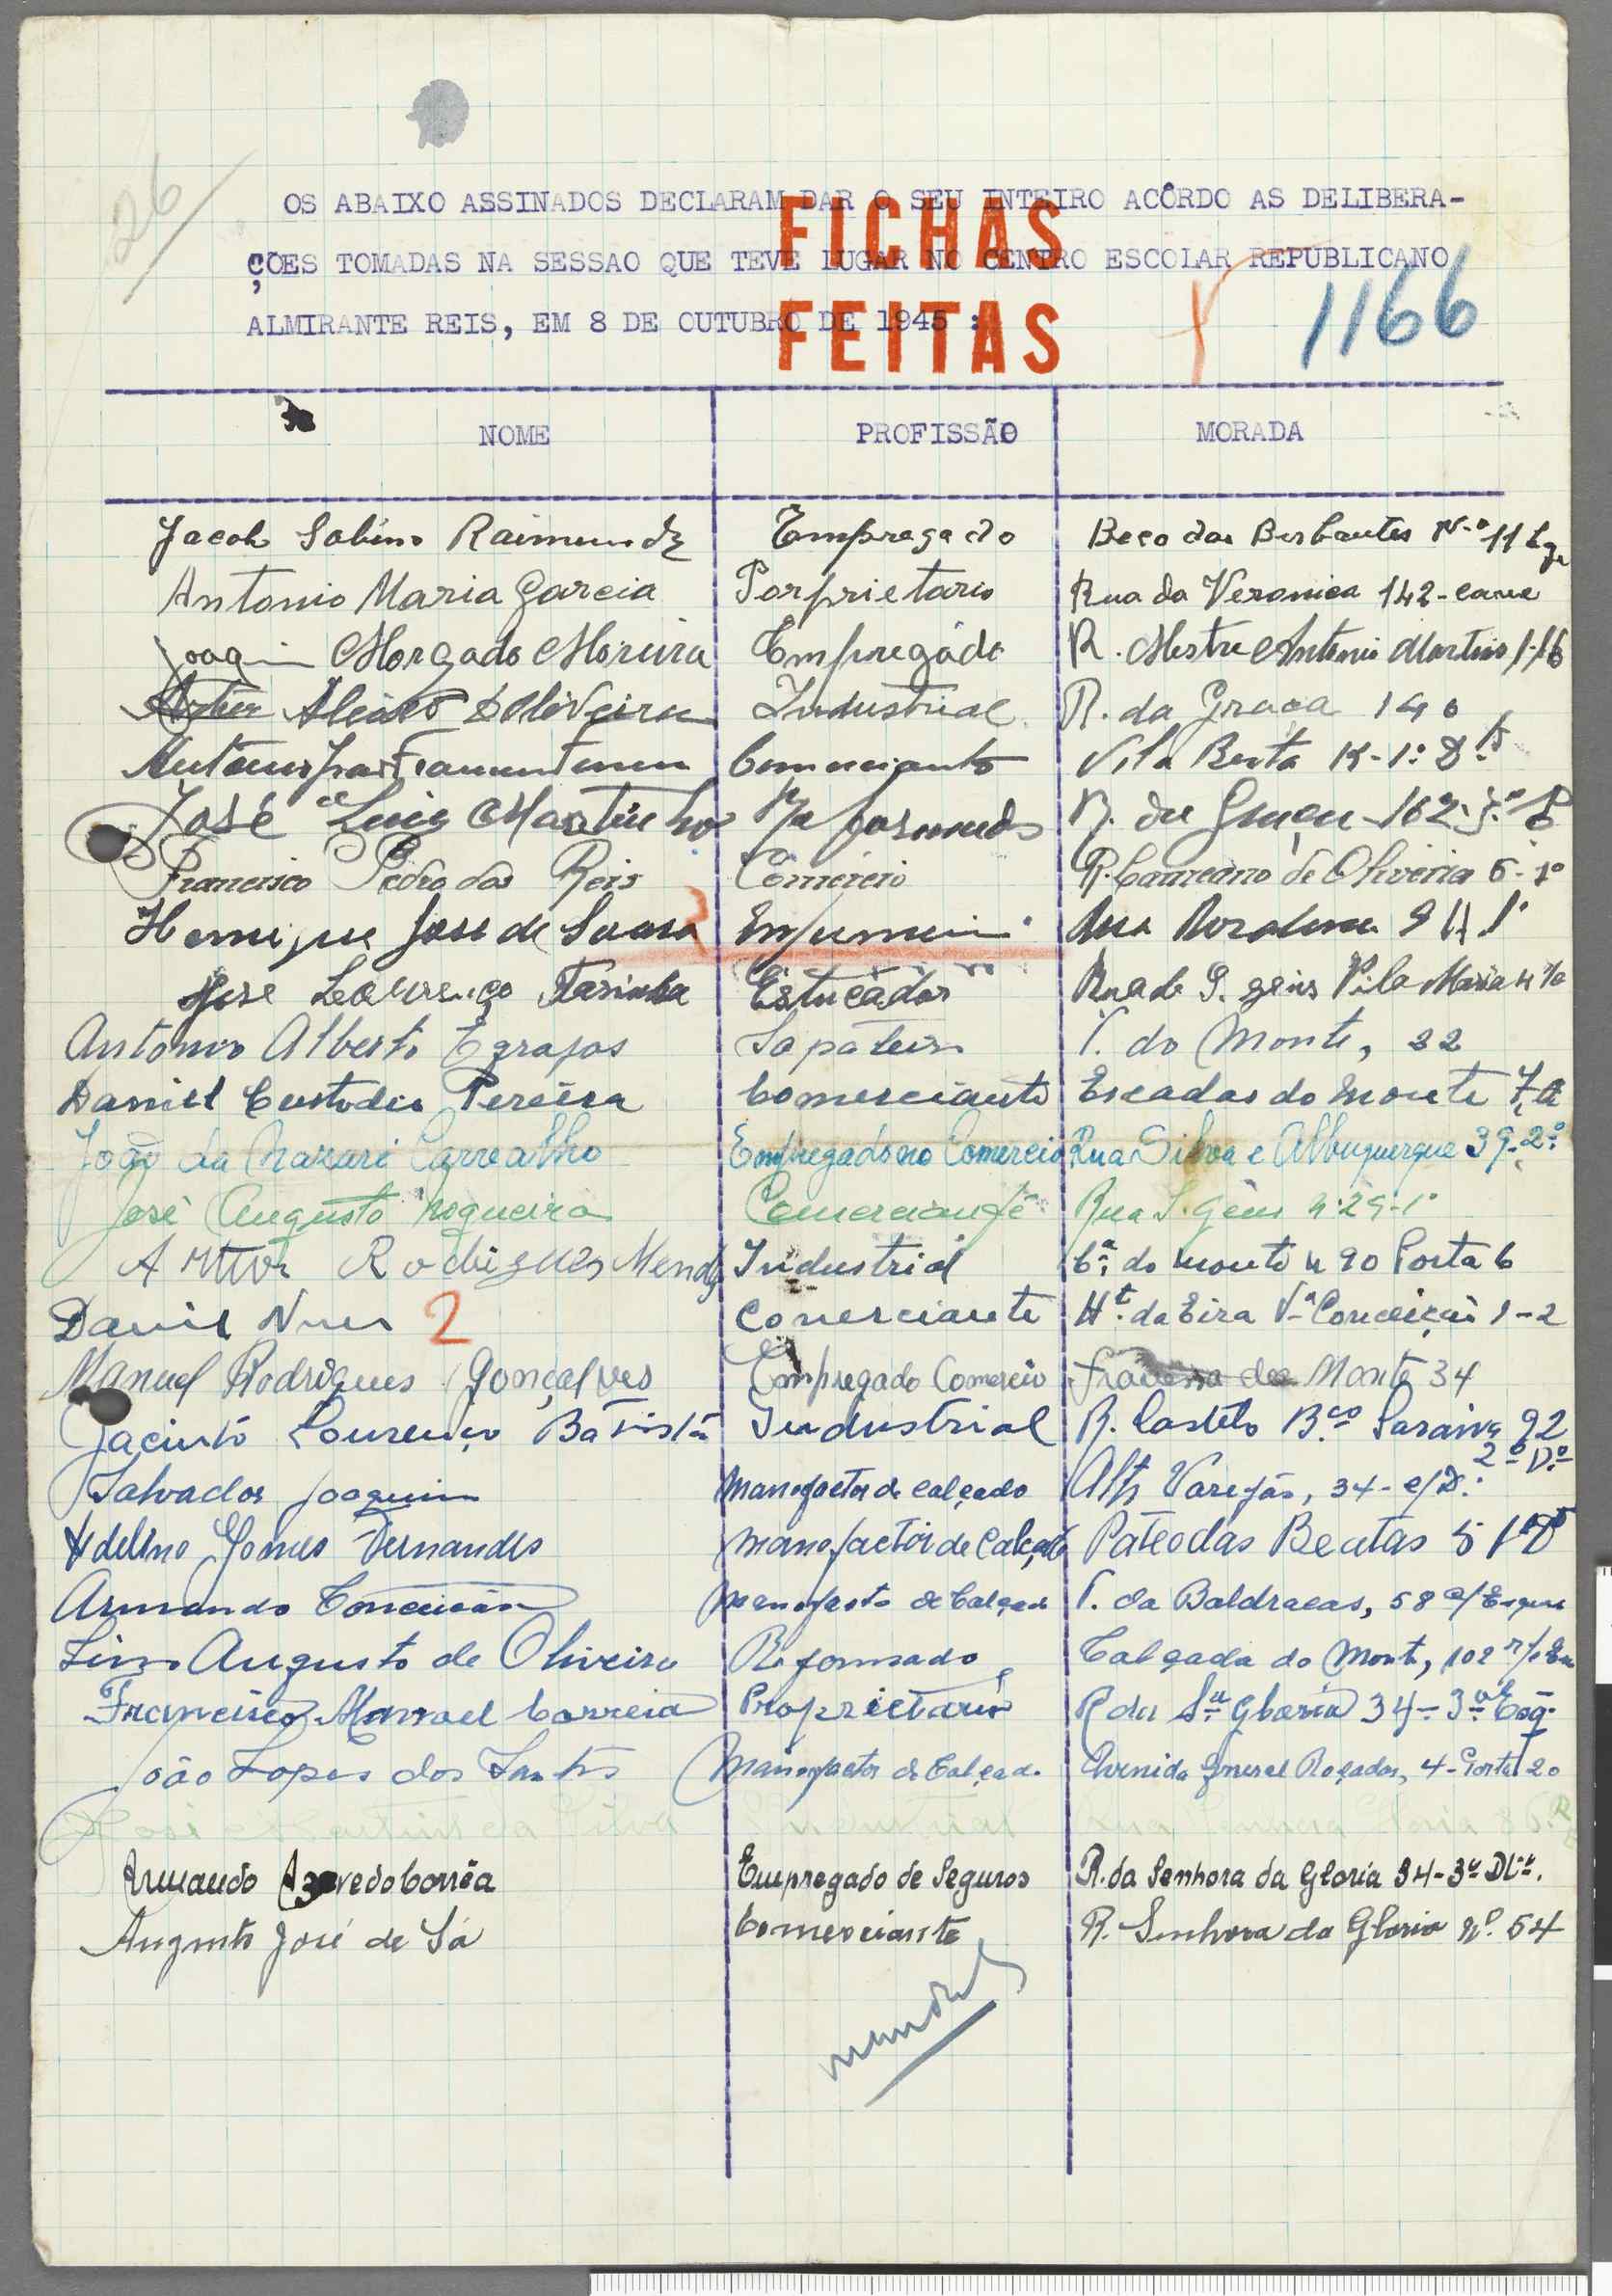 26
OS ABAIXO ASSINADOS DECLARAM DAR O SEU INTEIRO ACÔRDO AS DELIBERA-
ÇOES TOMADAS NA SESSAO QUE TEVE LUGAR NO CENTRO ESCOLAR REPUBLICANO
ALMIRANTE REIS, EM 8 DE OUTUBRO DE 1945 :
FICHAS
FEITAS
1166
NOME PROFISSÃO MORADA
Jacob Sabino Raimundo Empregado Beco dos Barbantes N.o 11
Antonio Maria Garcia Porprietario Rua da Veronica 142-cave
Joaquim Morgado Moreira Empregado R. Mestre Antonio Martins
Oliveira Industrial R. da Graça 140
Comerciante Vila Berta K-1º
José Luis Martinho Reformado R. da Graça 162
Francisco Pedro dos Reis Comercio R. Caminho de Oliveira 6-1º
Henrique José de Sousa Rua
José Lourenço Farinha Estucador Rua de S. Gens Vila Maria
Antonio Alberto Sapateiro T. do Monte, 22
Daniel Custodio Pereira Comerciante Escadas do Monte 7, A
João da Nazaré Carvalho Empregado no Comercio Rua Silva e Albuquerque 39-2º
José Augusto Nogueira Comerciante Rua S. Gens nº 29-1º
Artur Rodrigues Mendes Industrial Cª do Monte n 90 Porta 6
Daniel Nunes 2 Comerciante Ht. da Eira Vª Conceição 1-2
Manuel Rodrigues Gonçalves Empregado Comercio Travessa do Monte 34
Jacinto Lourenço Batista Industrial R. Castelo B.co Saraiva 92
2º D.º
Salvador Joaquim Manofactor de calçado Alto Varejão, 34-c/D.
Adelino Gomes Fernandes Manofactor de Calçado Páteo das Beatas 5
Armando Conceição Manofacto de Calçado T. da Baldracas, 58
Augusto de Oliveira Reformado Calçada do Monte, 102
Francisco Manoel Correia Proprietario R da Sra Gloria 34-3º Esq.
João Lopes dos Santos Manofactor de Calçado Avenida General Roçadas, 4-Porta 20
José Martins da Silva Industrial Rua Senhora Gloria
Armando Azevedo Corrêa Empregado de Seguros R. da Senhora da Gloria 34-3º Dtº.
Augusto José de Sá Comerciante R. Senhora da Gloria nº. 54